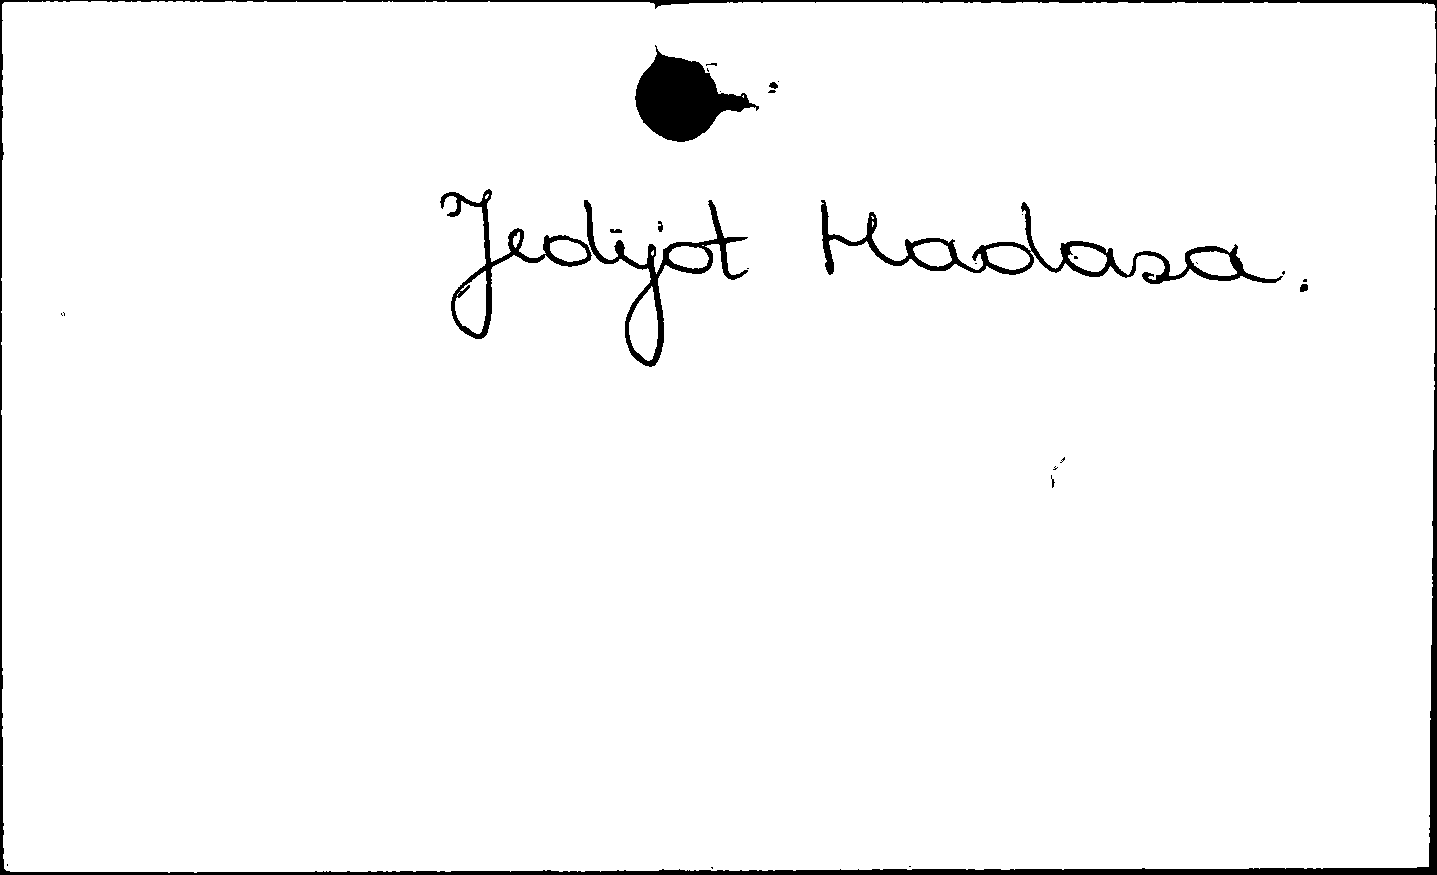 Jedijot Hadasa.